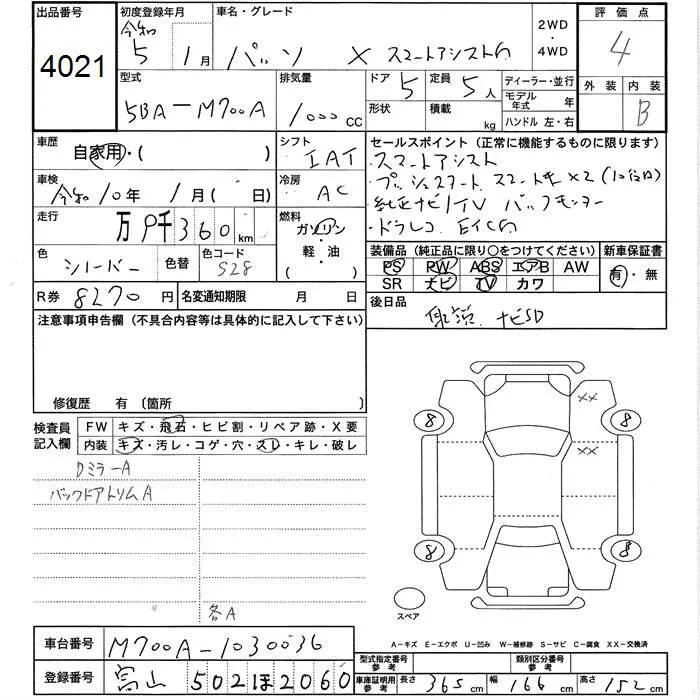 出品番号
4021
初度登録年月
令和
5 1月
車名・グレード
パッソ X スマートアシストG
2WD
・
4WD
評価点
4
外装 内装
B
型式
5BA-M700A
排気量
1000 CC
ドア 5
定員 5人
形状
積載 kg
ディーラー・並行
モデル年式 年
ハンドル 左・右
車歴
自家用・( )
シフト
IAT
車検
令和 10年 1月( 日)
冷房
AC
走行
万 9千360 km
燃料
ガソリン
・
軽・油
( )
色
シルバー
色替
色コード
S28
R券 8270 円
名変通知期限 月 日
セールスポイント(正常に機能するものに限ります)
・スマートアシスト
・プッシュスタート スマートキー×2
・純正ナビ/TV バックモニター
・ドラレコ ETC
装備品(純正品に限り○をつけてください)
PS PW ABS エアB AW
SR ナビ TV カワ
新車保証書
有・無
後日品
取説、ナビSD
注意事項申告欄(不具合内容等は具体的に記入して下さい)
修復歴 有〔箇所 〕
検査員
記入欄
FW キズ・飛石・ヒビ割・リペア跡・X要
内装 キズ・汚レ・コゲ・穴・スレ・キレ・破レ
DミラーA
バックドアトリムA
各A
XX
XX
8 8
8 8
スペア
A-キズ E-エクボ U-凹み W-補修跡 S-サビ C-腐食 XX-交換済
車台番号 M700A-1030036
登録番号 富山 502ほ2060
型式指定番号
参考
類別区分番号
参考
車庫証明用
参考
長さ 365 cm 幅 166 cm 高さ 152 cm